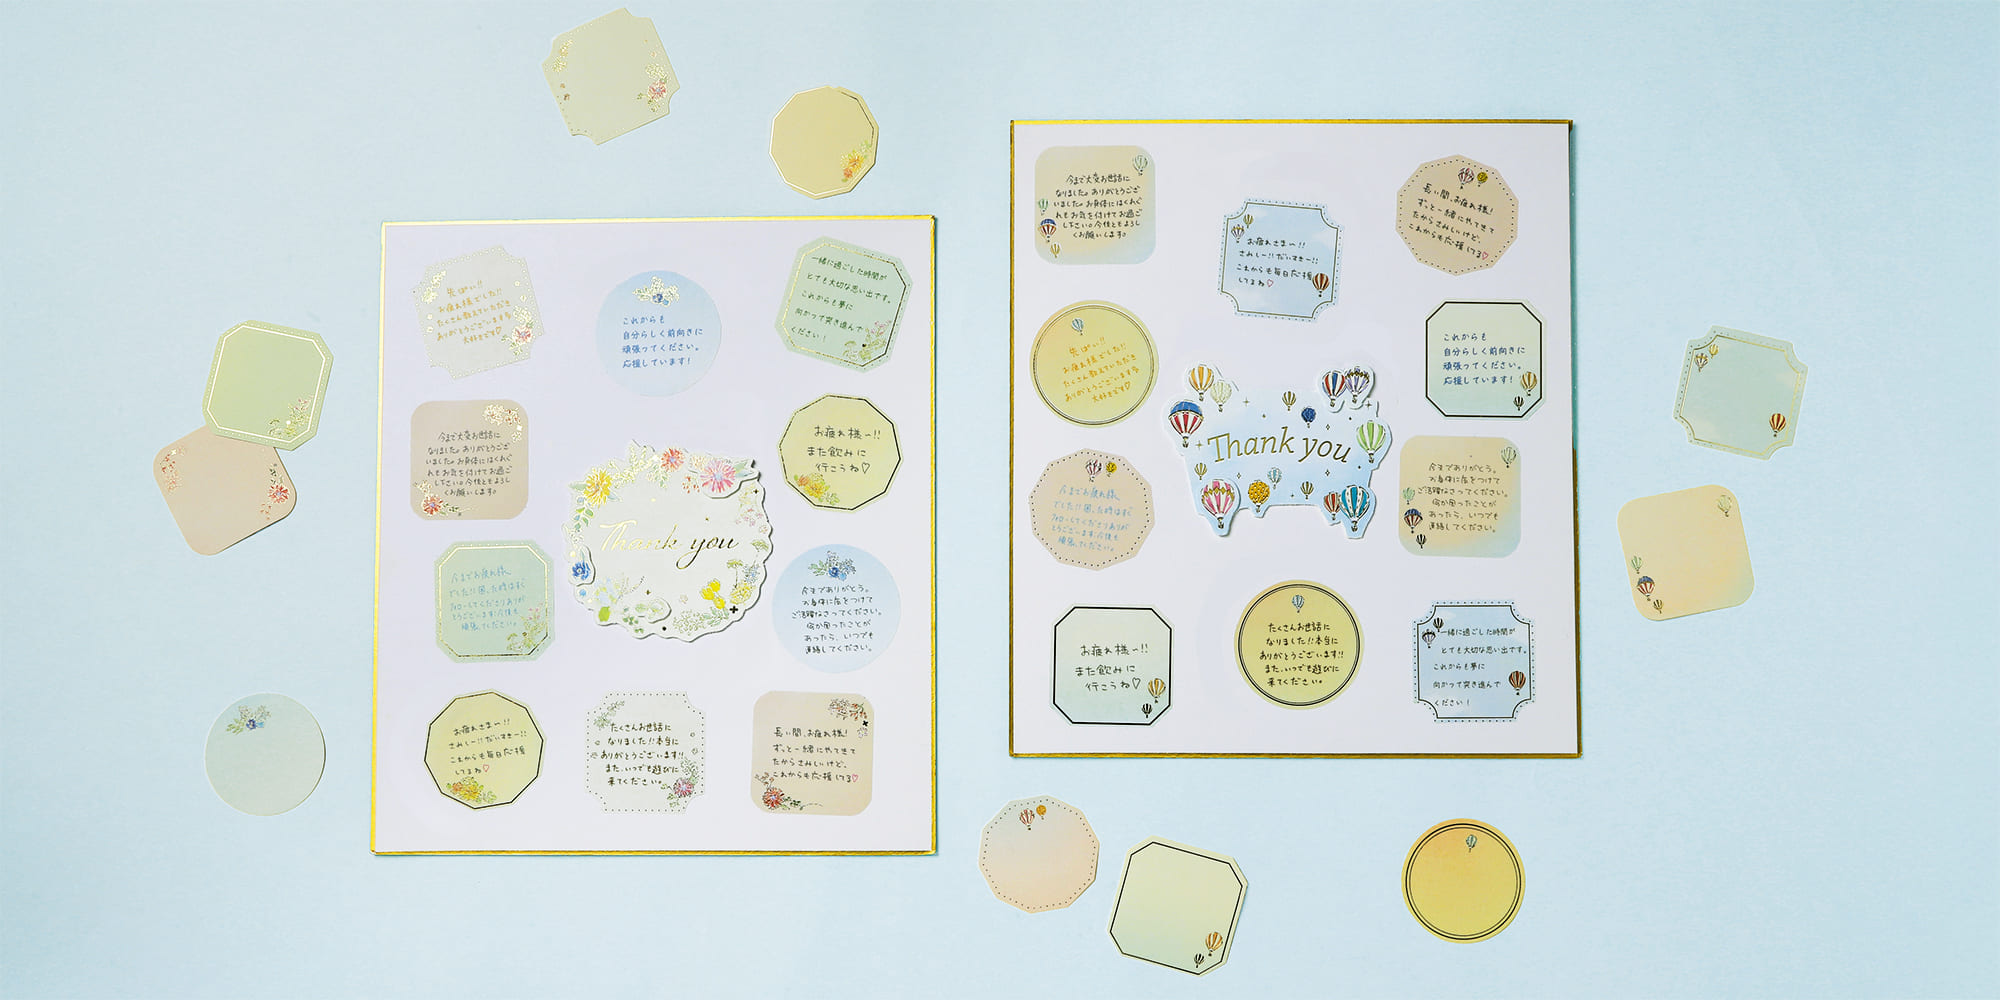 先ぱい!!
お疲れ様でした!!
たくさん教えていただき
ありがとうございます
大好きです♡
これからも
自分らしく前向きに
頑張ってください。
応援しています!
一緒に過ごした時間が
とても大切な思い出です。
これからも夢に
向かって突き進んで
ください!
今まで大変お世話に
なりました。ありがとうござ
いました。お身体にはくれぐ
れもお気を付けてお過ご
し下さい。今後ともよろし
くお願いします。
Thank you
お疲れ様〜!!
また飲みに
行こうね♡
今までお疲れ様
でした!!困った時はすぐ
フォローしてくださりあり
がとうございます!今後も
頑張ってください。
今までありがとう。
お身体に気をつけて
ご活躍なさってください。
何か困ったことが
あったら、いつでも
連絡してください。
お疲れさま〜!!
さみしー!!だいすきー!!
これからも毎日応援
してるね♡
たくさんお世話に
なりました!!本当に
ありがとうございます!!
また、いつでも遊びに
来てください。
長い間、お疲れ様!
ずっと一緒にやってきて
たからさみしいけど、
これからも応援してる♡
今まで大変お世話に
なりました。ありがとうござ
いました。お身体にはくれぐ
れもお気を付けてお過ご
し下さい。今後ともよろし
くお願いします。
お疲れさま〜!!
さみしー!!だいすきー!!
これからも毎日応援
してるね♡
長い間、お疲れ様!
ずっと一緒にやってきて
たからさみしいけど、
これからも応援してる♡
先ぱい!!
お疲れ様でした!!
たくさん教えていただき
ありがとうございます
大好きです♡
Thank you
これからも
自分らしく前向きに
頑張ってください。
応援しています!
今までお疲れ様
でした!!困った時はすぐ
フォローしてくださりあり
がとうございます!今後も
頑張ってください。
今までありがとう。
お身体に気をつけて
ご活躍なさってください。
何か困ったことが
あったら、いつでも
連絡してください。
お疲れ様〜!!
また飲みに
行こうね♡
たくさんお世話に
なりました!!本当に
ありがとうございます!!
また、いつでも遊びに
来てください。
一緒に過ごした時間が
とても大切な思い出です。
これからも夢に
向かって突き進んで
ください!